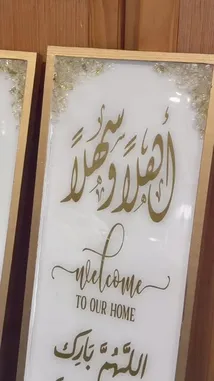 أهلاً وسهلاً
welcome
TO OUR HOME
اللَّهُمَّ بَارِكْ